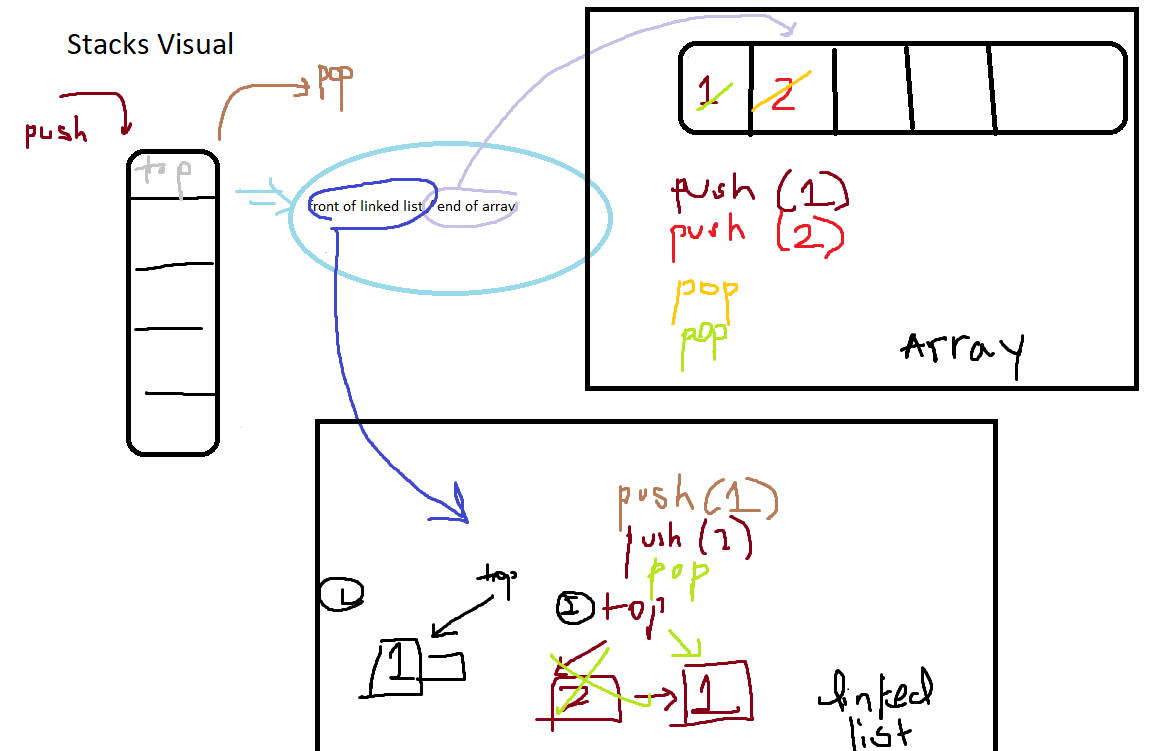 Stacks Visual
pop
push
top
front of linked list / end of array
1 2
push (1)
push (2)
pop
pop
Array
push (1)
push (2)
pop
top
top
1
2
1
linked
list